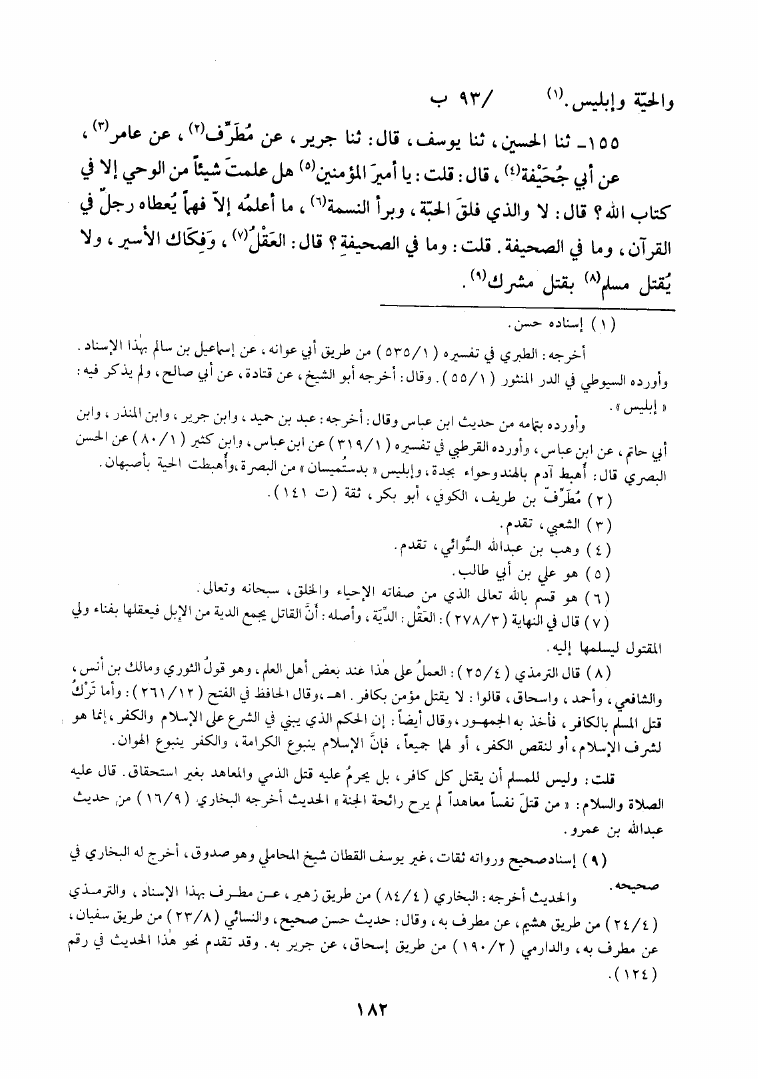 والحيّة وإبليس.(١) /٩٣ ب
١٥٥ـ ثنا الحسين، ثنا يوسف، قال: ثنا جرير، عن مُطَرِّف(٢)، عن عامر(٣)،
عن أبي جُحَيْفة(٤)، قال: قلت: يا أميرَ المؤمنين(٥) هل علمتَ شيئاً من الوحي إلا في
كتاب الله؟ قال: لا والذي فلقَ الحبّة، وبرأ النسمة(٦)، ما أعلمُه إلاّ فهماً يُعطاه رجلٌ في
القرآن، وما في الصحيفة. قلت: وما في الصحيفةِ؟ قال: العَقْلُ(٧)، وَفِكَاك الأسير، ولا
يُقتل مسلم(٨) بقتل مشرك(٩).
(١) إسناده حسن.
أخرجه: الطبري في تفسيره (٥٣٥/١) من طريق أبي عوانه، عن إسماعيل بن سالم بهٰذا الإسناد.
وأورده السيوطي في الدر المنثور (٥٥/١). وقال: أخرجه أبو الشيخ، عن قتادة، عن أبي صالح، ولم يذكر فيه:
«إبليس».
وأورده بتمامه من حديث ابن عباس وقال: أخرجه: عبد بن حميد، وابن جرير، وابن المنذر، وابن
أبي حاتم، عن ابن عباس، وأورده القرطبي في تفسيره (٣١٩/١) عن ابن عباس، وابن كثير (٨٠/١) عن الحسن
البصري قال: أُهبط آدم بالهند وحواء بجدة، وإبليس «بدستُميسان» من البصرة، وأُهبطت الحية بأصبهان.
(٢) مُطَرِّفّ بن طريف، الكوفي، أبو بكر، ثقة (ت ١٤١).
(٣) الشعبي، تقدم.
(٤) وهب بن عبدالله السُّوائي، تقدم.
(٥) هو علي بن أبي طالب.
(٦) هو قسم بالله تعالى الذي من صفاته الإحياء والخلق، سبحانه وتعالى.
(٧) قال في النهاية (٢٧٨/٣): العَقْل: الدِّيَة، وأصله: أنَّ القاتل يجمع الدية من الإبل فيعقلها بفناء ولي
المقتول ليسلمها إليه.
(٨) قال الترمذي (٢٥/٤): العملُ على هٰذا عند بعض أهل العلم، وهو قولُ الثوري ومالك بن أنس،
والشافعي، وأحمد، واسحاق، قالوا: لا يقتل مؤمن بكافر. اهـ، وقال الحافظ في الفتح (٢٦١/١٢): وأما تَرْكُ
قتل المسلم بالكافر، فأخذ به الجمهور، وقال أيضاً: إن الحكم الذي يبني في الشرع على الإسلام والكفر، إنما هو
لشرف الإسلام، أو لنقص الكفر، أو لهما جميعاً، فإنَّ الإسلام ينبوع الكرامة، والكفر ينبوع الهوان.
قلت: وليس للمسلم أن يقتل كل كافر، بل يحرمُ عليه قتل الذمي والمعاهد بغير استحقاق. قال عليه
الصلاة والسلام: «من قتلَ نفساً معاهداً لم يرح رائحة الجنة» الحديث أخرجه البخاري (١٦/٩) من حديث
عبدالله بن عمرو.
(٩) إسناد صحيح ورواته ثقات، غير يوسف القطان شيخ المحاملي وهو صدوق، أخرج له البخاري في
صحيحه.
والحديث أخرجه: البخاري (٨٤/٤) من طريق زهير، عن مطرف بهذا الإسناد، والترمذي
(٢٤/٤) من طريق هشيم، عن مطرف به، وقال: حديث حسن صحيح، والنسائي (٢٣/٨) من طريق سفيان،
عن مطرف به، والدارمي (١٩٠/٢) من طريق إسحاق، عن جرير به. وقد تقدم نحو هٰذا الحديث في رقم
(١٢٤).
١٨٢